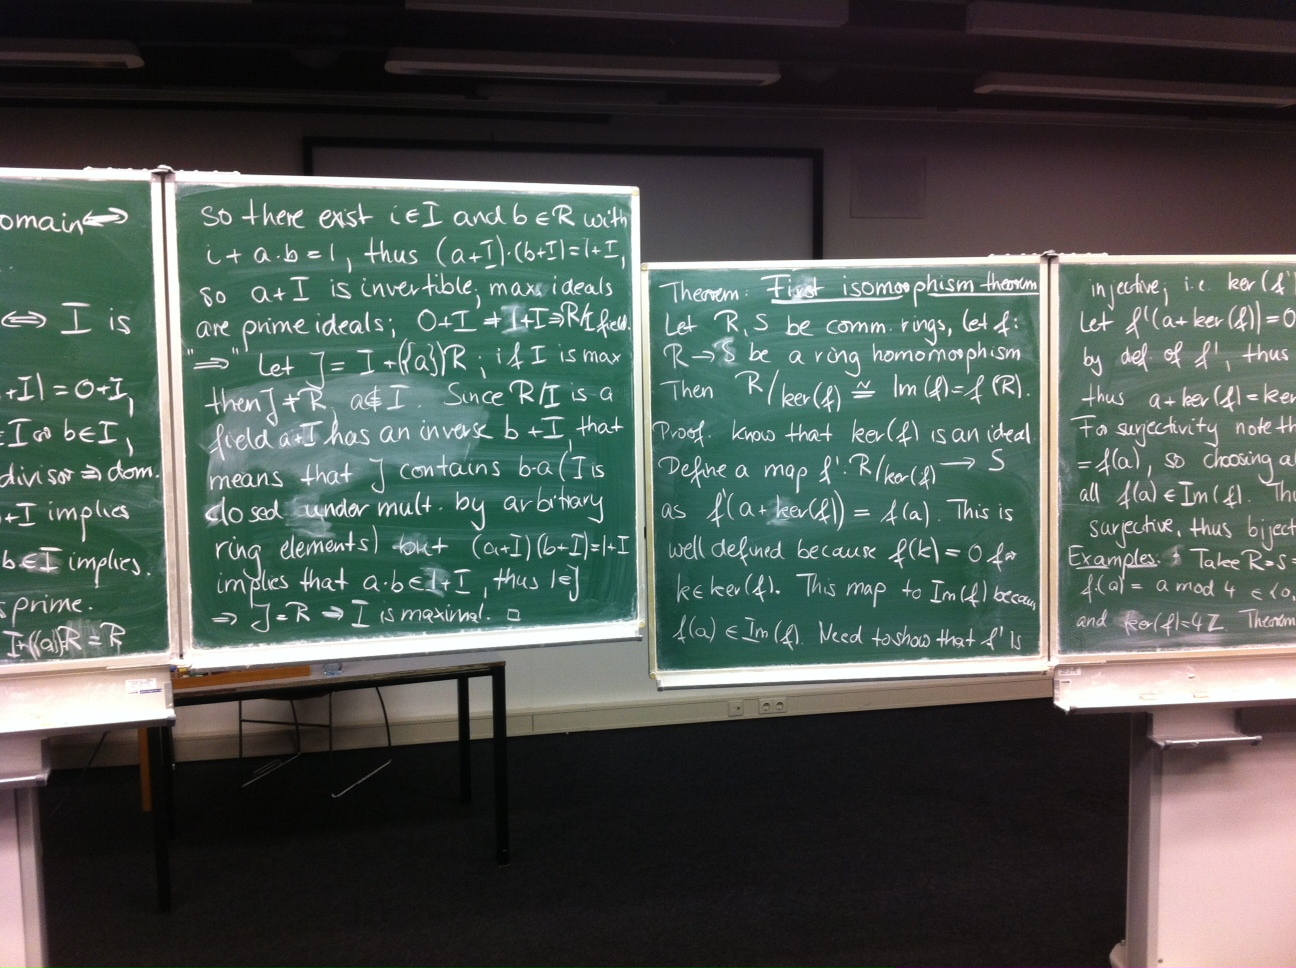 omain ⟺
⟺ I is
+I) = 0+I,
∈I or b∈I,
divisor ⇒ dom.
+I implies
b∈I implies.
s prime.
I+({a})R = R
So there exist i∈I and b∈R with
i + a·b = 1, thus (a+I)·(b+I)=1+I,
so a+I is invertible; max. ideals
are prime ideals; 0+I ≠ 1+I ⇒ R/I field.
"⇒" Let J = I+({a})R; if I is max
then J ≠ R, a∉I. Since R/I is a
field a+I has an inverse b+I, that
means that J contains b·a (I is
closed under mult. by arbitrary
ring elements) but (a+I)(b+I)=1+I
implies that a·b∈1+I, thus 1∈J
⇒ J=R ⇒ I is maximal. □
Theorem: First isomorphism theorem
Let R, S be comm. rings, let f:
R → S be a ring homomorphism
Then R/ker(f) ≅ Im(f) = f(R).
Proof. Know that ker(f) is an ideal
Define a map f': R/ker(f) → S
as f'(a+ker(f)) = f(a). This is
well defined because f(k) = 0 for
k∈ker(f). This map to Im(f) becau
f(a) ∈ Im(f). Need to show that f' is
injective, i.e. ker(f')
Let f'(a+ker(f))=0
by def. of f', thus
thus a+ker(f)=ker
For surjectivity note th
=f(a), so choosing al
all f(a)∈Im(f). Thu
surjective, thus biject
Examples: Take R=S=
f(a) = a mod 4 ∈ {0,
and ker(f)=4Z Theorem